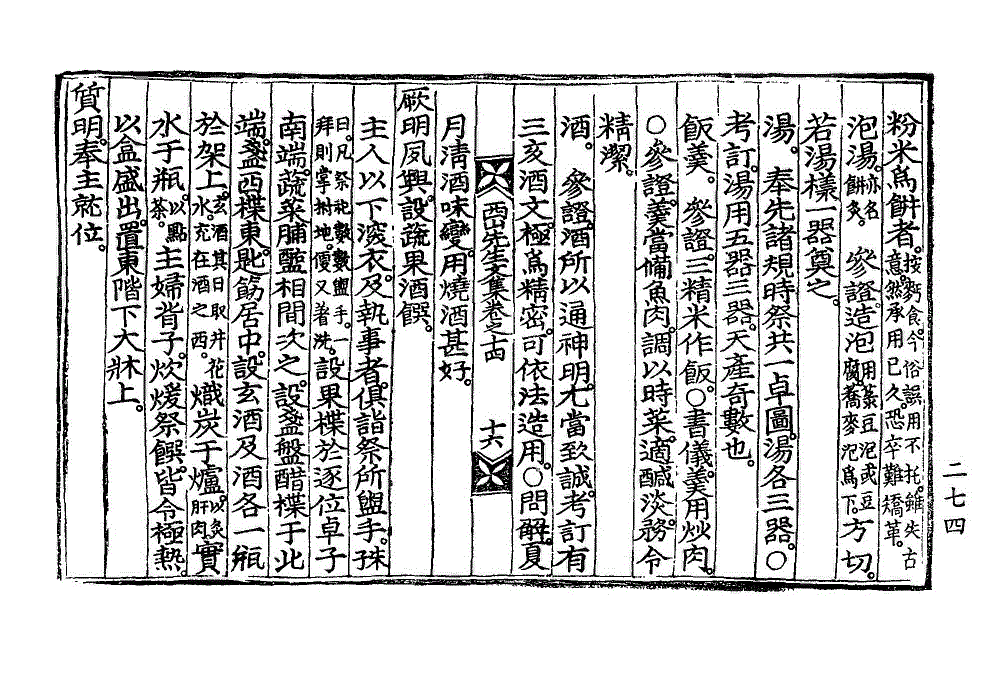 粉米爲餠者。按麪食。今俗誤用不托。雖失古意。然承用已久。恐卒難矯革。
泡湯。亦名餠炙。 參證。造泡用菉豆泡或豆腐。蕎麥泡爲下。方切。
若湯樣一器奠之。
湯。 奉先諸規時祭共一卓圖。湯各三器。○
考訂。湯用五器三器。天產奇數也。
飯羹。 參證。三精米作飯。○書儀。羹用炒肉。
○參證。羹當備魚肉。調以時菜。適醎淡。務令
精潔。
酒。 參證。酒所以通神明。尤當致誠。考訂有
三亥酒文。極爲精密。可依法造用。○問解。夏
月淸酒味變。用燒酒甚好。
西山先生文集卷之十四 十六
厥明夙興。設蔬果酒饌。
主人以下深衣。及執事者。俱詣祭所盥手。殊
曰。凡祭祀數數盥手。一拜則掌拊地。便又着洗。設果楪於逐位卓子
南端。蔬菜脯醢相間次之。設盞盤醋楪于北
端。盞西楪東。匙筯居中。設玄酒及酒各一甁
於架上。玄酒其日取井花水。充在酒之西。熾炭于爐。以炙肝肉。實
水于甁。以點茶。主婦背子。炊煖祭饌。皆令極熱。
以盒盛出。置東階下大牀上。
質明。奉主就位。
二七四